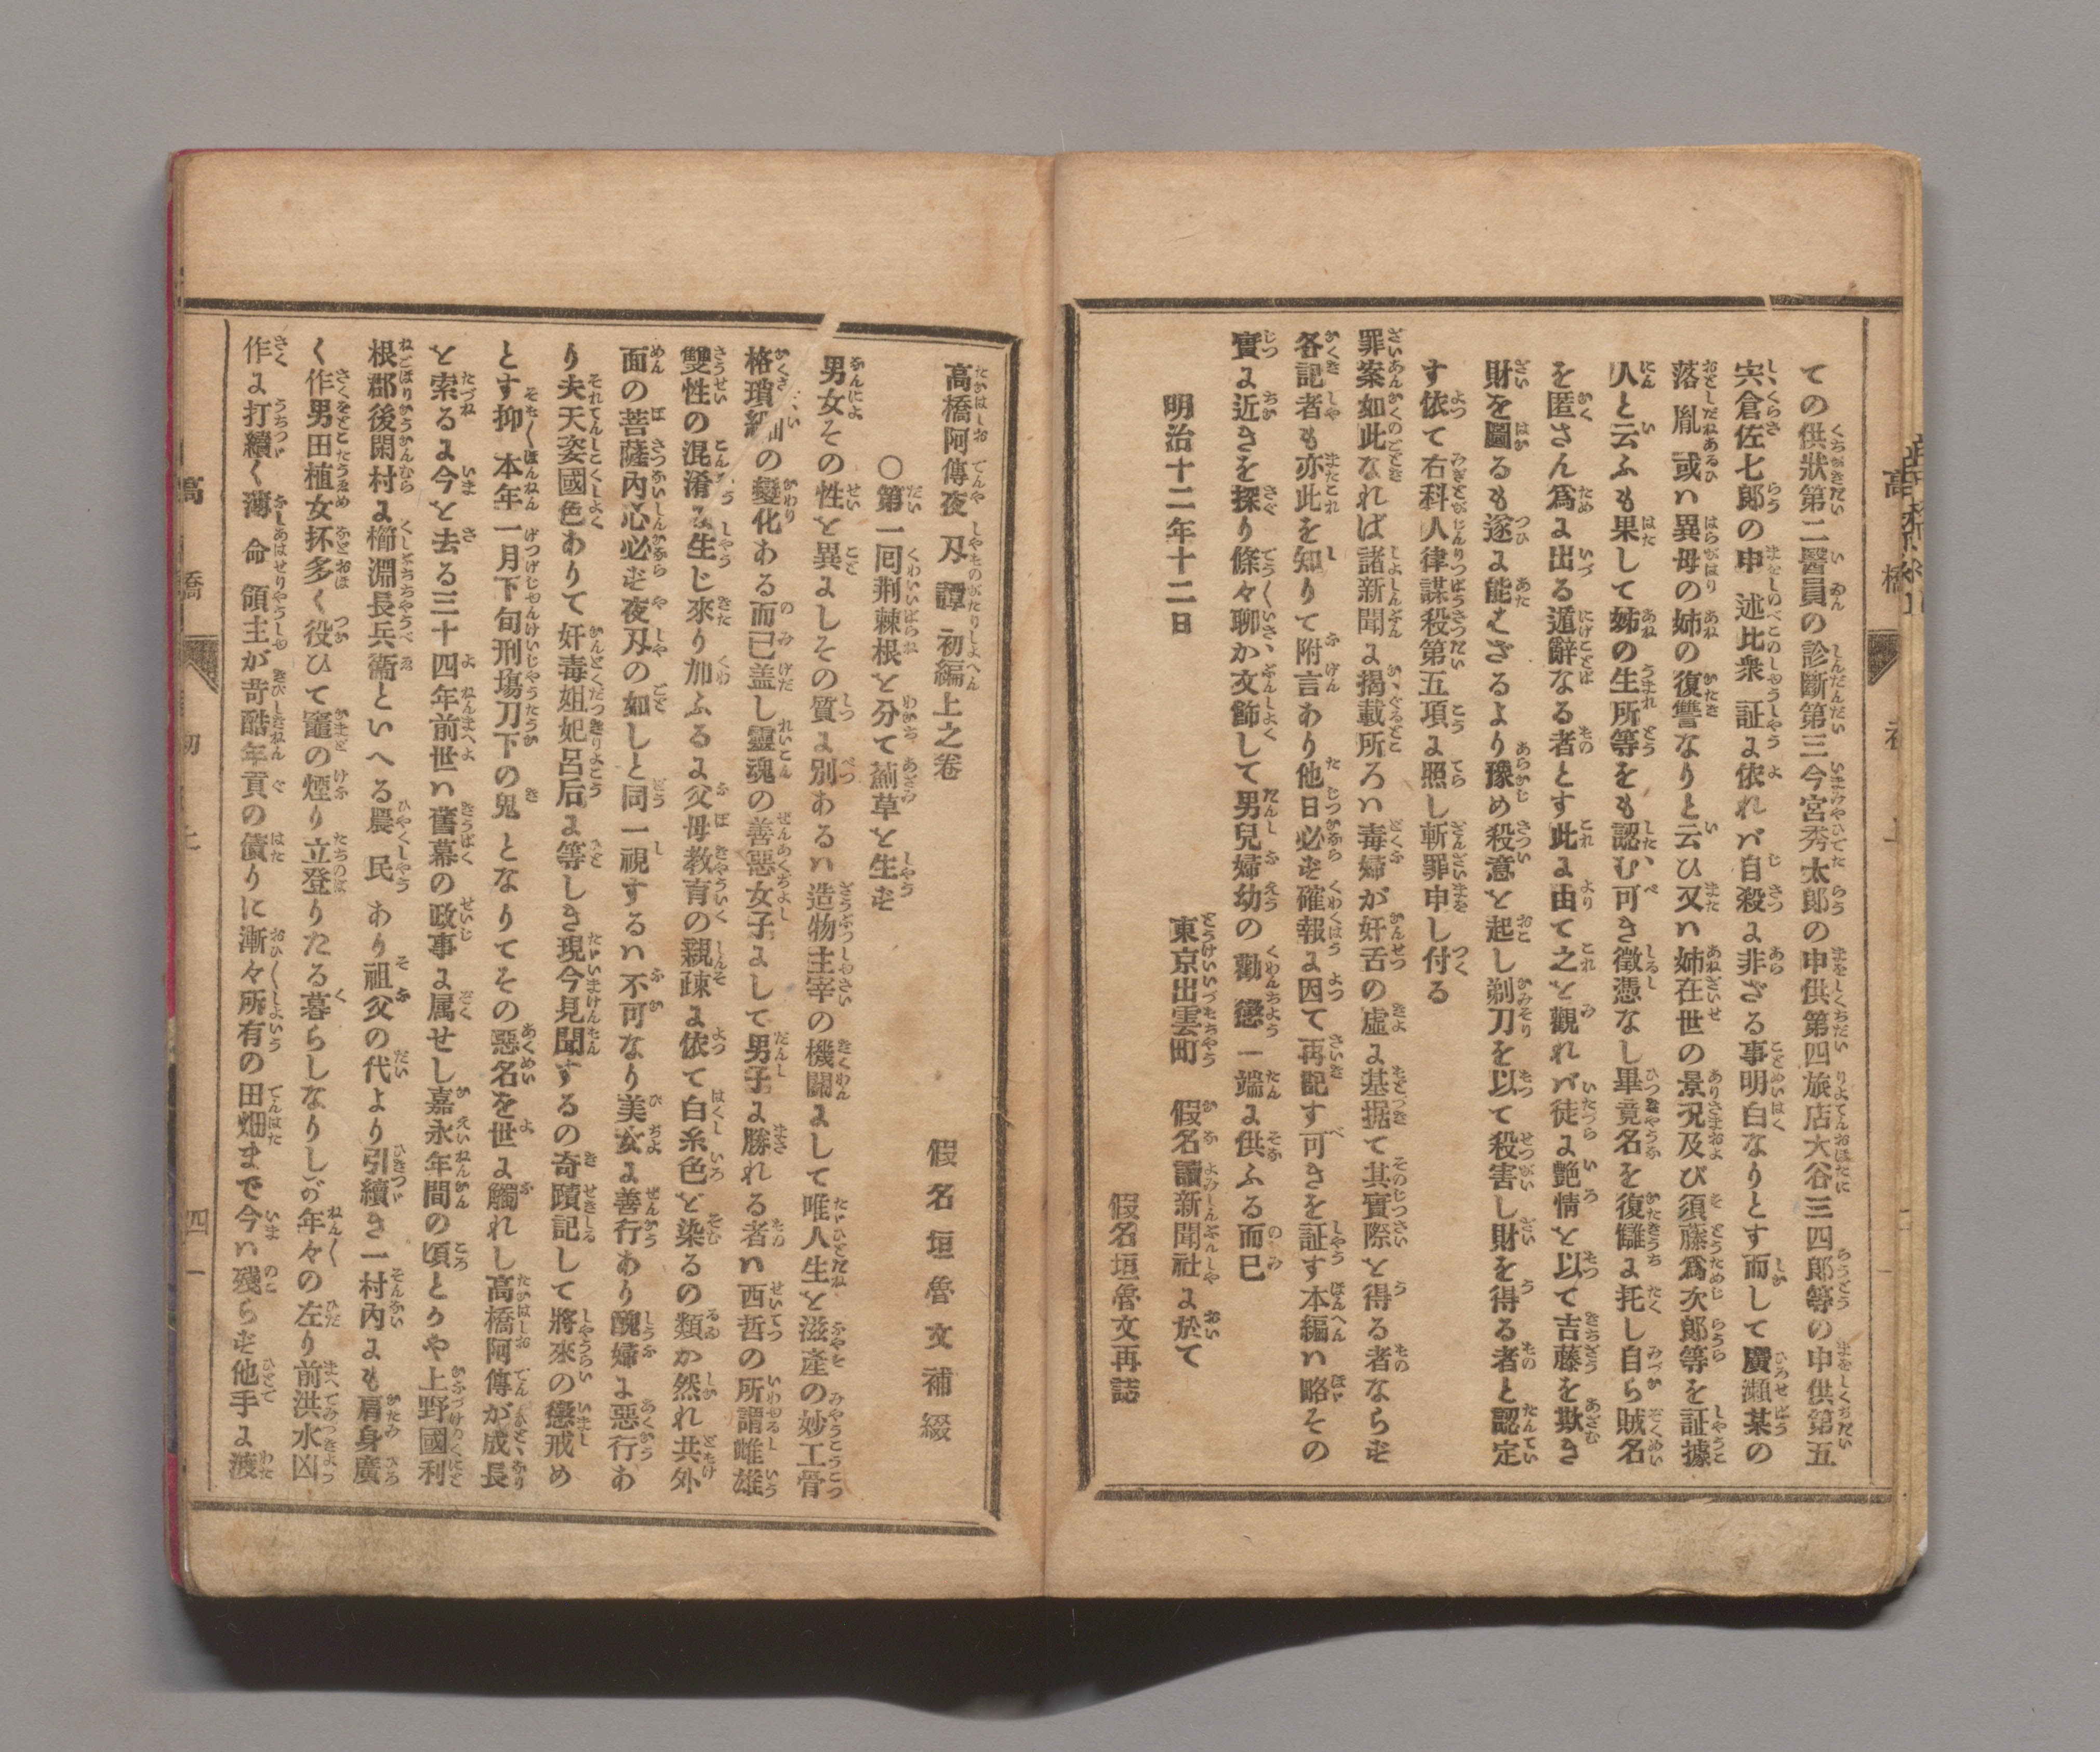 ての供狀第二醫員の診斷第三今宮秀太郎の申供第四旅店大谷三四郎等の申供第五
宍倉佐七郎の申述比衆証ょ依れバ自殺ょ非ざる事明白なりとす而して廣瀬某の
落胤或ハ異母の姉の復讐なりと云ひ又ハ姉在世の景況及び須藤爲次郎等を証據
人と云ふも果して姉の生所等をも認む可き徵憑なし畢竟名を復讎ょ托し自ら賊名
を匿さん爲ょ出る遁辭なる者とす此ょ由て之と觀れバ徒ょ艶情と以て吉藤を欺き
財を圖るも遂ょ能はざるより豫め殺意と起し剃刀を以て殺害し財を得る者と認定
す依て右科人律謀殺第五項ょ照し斬罪申し付る
罪案如此なれば諸新聞ょ揭載所ろハ毒婦が奸舌の虛ょ基据て其實際と得る者ならず
各記者も亦此を知りて附言あり他日必ず確報ょ因て再記す可きを証す本編ハ略その
實ょ近きを探り條々聊か文飾して男兒婦幼の勸懲一端ょ供ふる而已
明治十二年十二日
東京出雲町 假名讀新聞社ょ於て
假名垣魯文再誌
高橋阿傳夜刄譚初編上之卷
假名垣魯文補綴
○第一囘荆棘根と分て薊草と生ず
男女その性と異ょしその質ょ別あるハ造物主宰の機關ょして唯人生と滋產の妙工骨
格瑣細の變化ある而已盖し靈魂の善惡女子ょして男子ょ勝れる者ハ西哲の所謂雌雄
雙性の混淆ょ生じ來り加ふるょ父母教育の親疎ょ依て白糸色と染るの類か然れ共外
面の菩薩內心必ず夜刄の如しと同一視するハ不可なり美女ょ善行あり醜婦ょ惡行あ
り夫天姿國色ありて奸毒妲妃呂后ょ等しき現今見聞するの奇蹟記して將來の懲戒め
とす抑本年一月下旬刑塲刀下の鬼となりてその惡名を世ょ觸れし高橋阿傳が成長
と索るょ今と去る三十四年前世ハ舊幕の政事ょ属せし嘉永年間の頃とかや上野國利
根郡後閑村ょ櫛淵長兵衞といへる農民あり祖父の代より引續き一村內ょも肩身廣
く作男田植女抔多く役ひて竈の煙り立登りたる暮らしなりしが年々の左り前洪水凶
作ょ打續く薄命領主が苛酷年貢の債りに漸々所有の田畑まで今ハ殘らず他手ょ渡
高橋
四